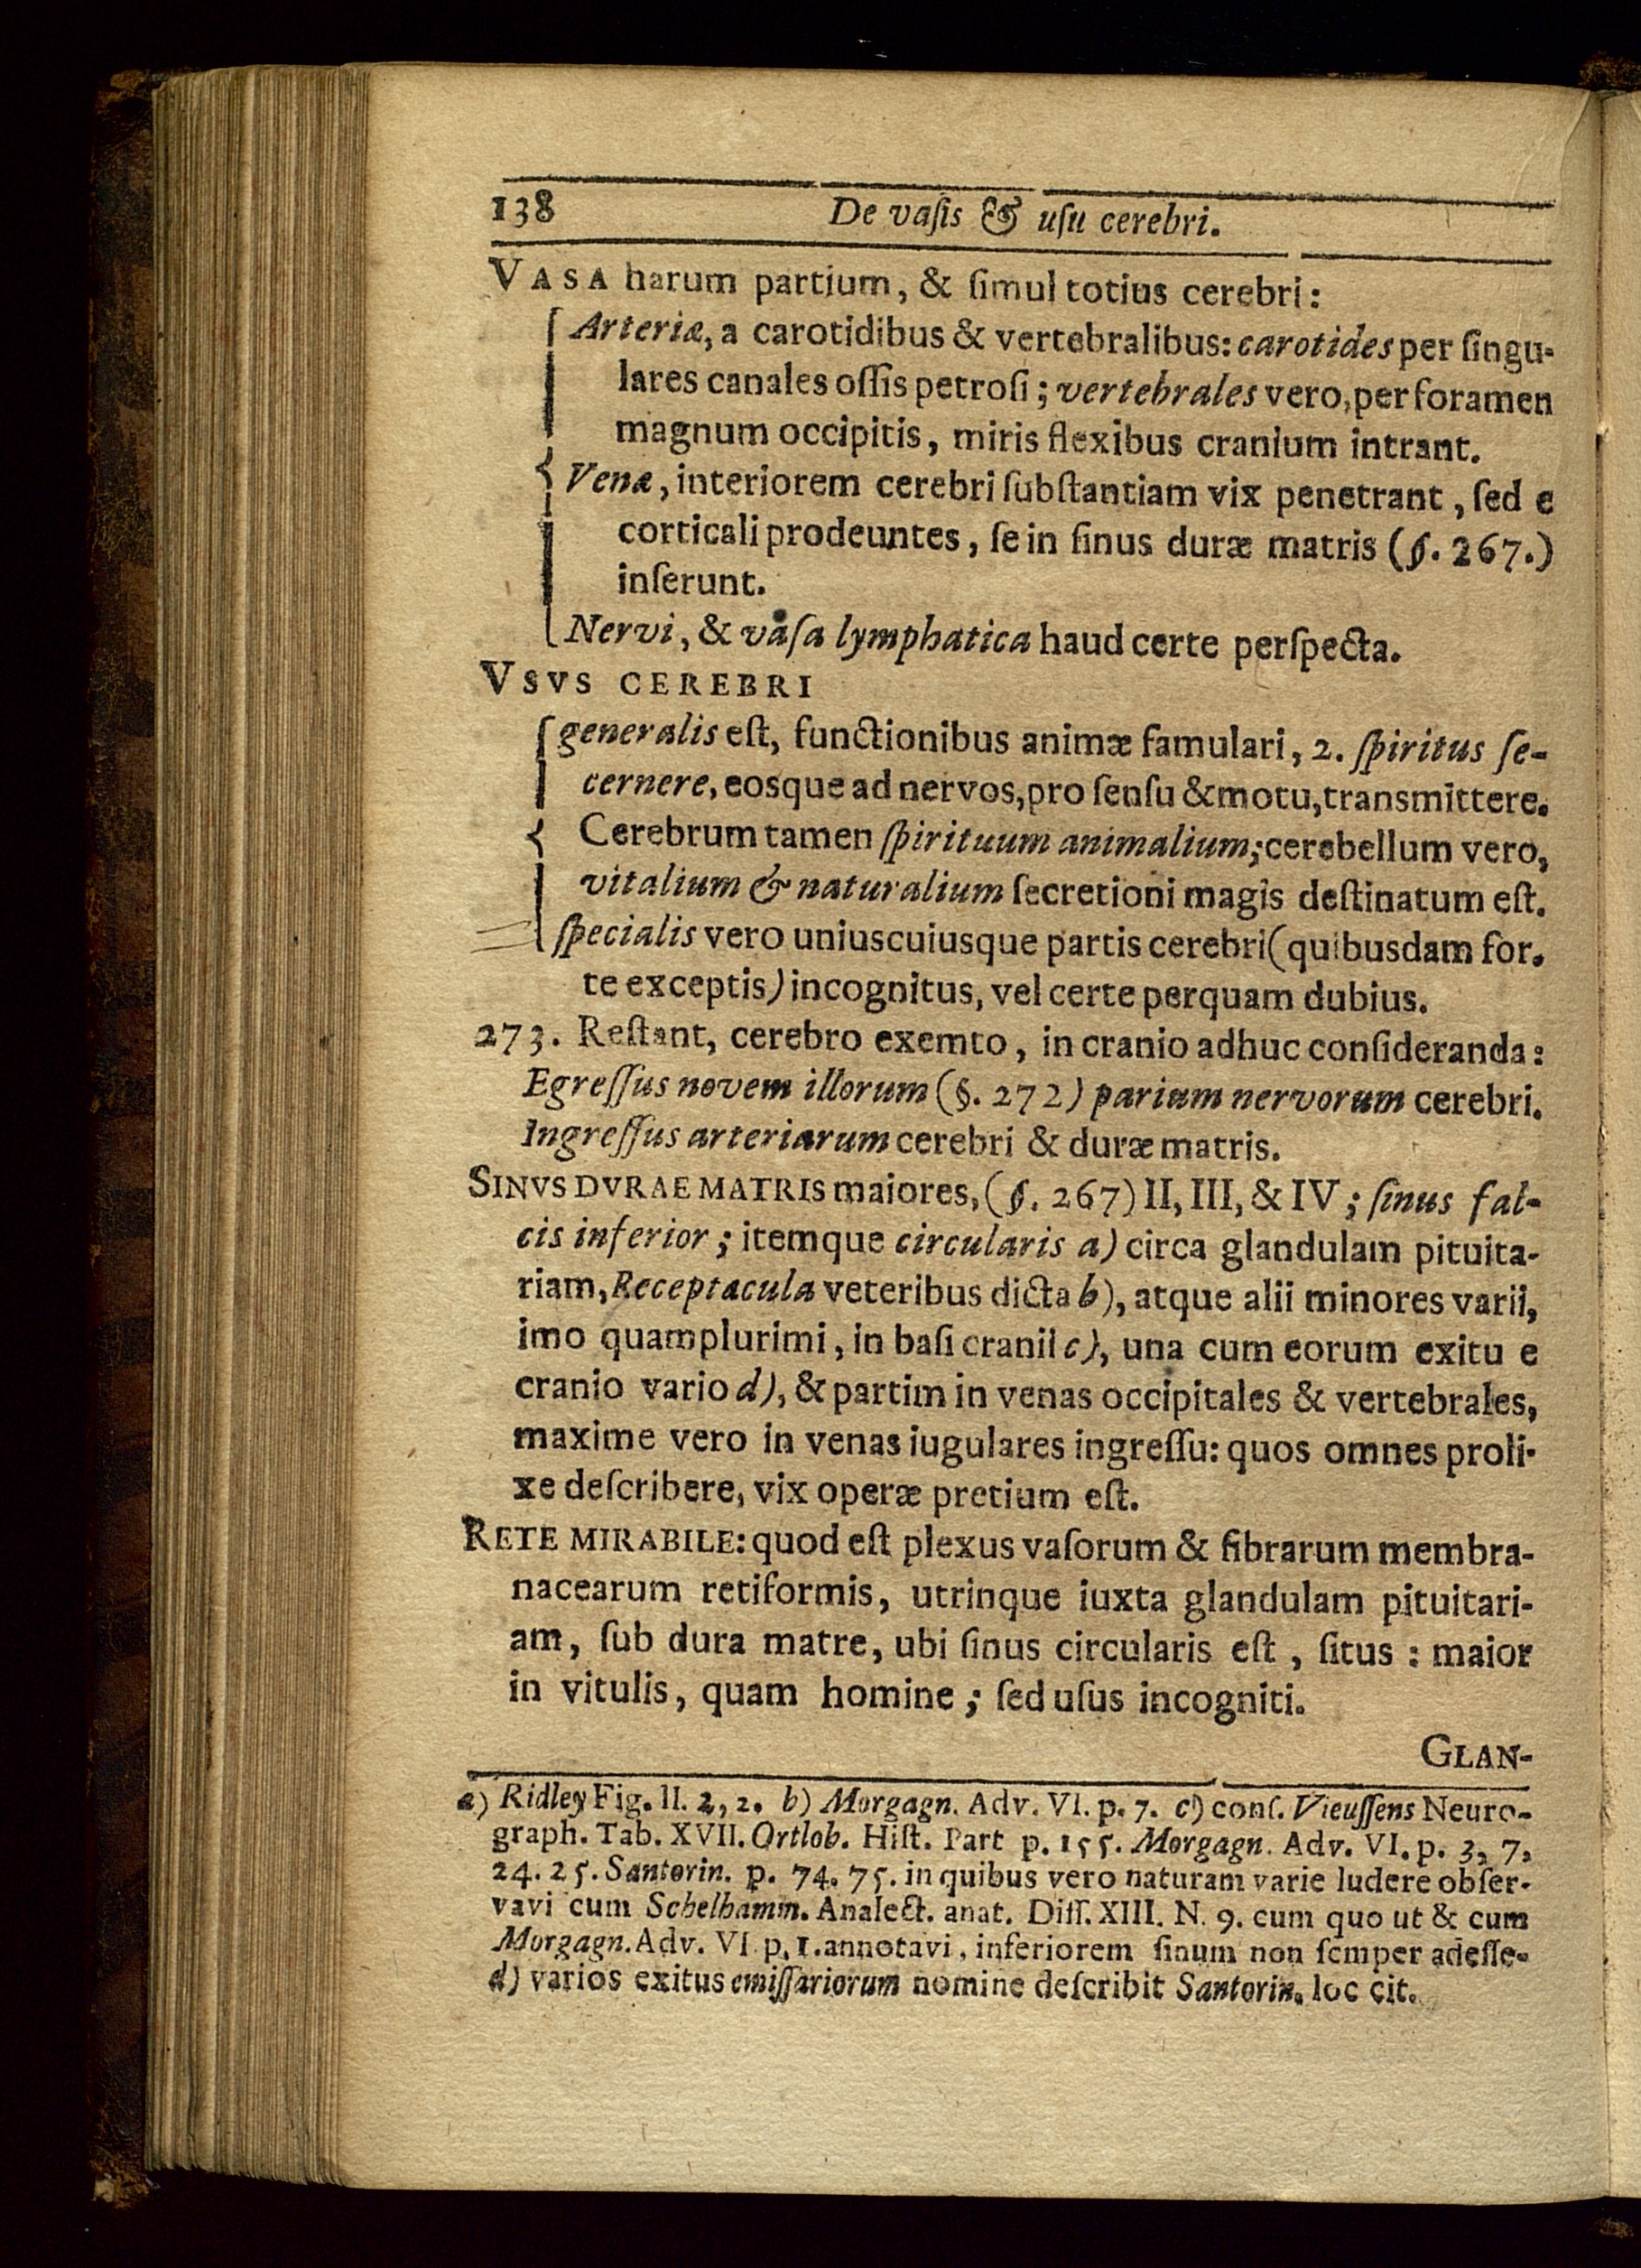 138 De vaſis & uſu cerebri.
VASA harum partium, & ſimul totius cerebri:
Arteriæ, a carotidibus & vertebralibus: carotides per ſingu-
lares canales oſſis petroſi; vertebrales vero, per foramen
magnum occipitis, miris flexibus cranium intrant.
Venæ, interiorem cerebri ſubſtantiam vix penetrant, ſed e
corticali prodeuntes, ſe in ſinus duræ matris (§. 267.)
inſerunt.
Nervi, & vaſa lymphatica haud certe perſpecta.
VSVS CEREBRI
generalis eſt, functionibus animæ famulari, 2. ſpiritus ſe-
cernere, eosque ad nervos, pro ſenſu & motu, transmittere.
Cerebrum tamen ſpirituum animalium; cerebellum vero,
vitalium & naturalium ſecretioni magis deſtinatum eſt.
ſpecialis vero uniuscuiusque partis cerebri (quibusdam for-
te exceptis) incognitus, vel certe perquam dubius.
273. Reſtant, cerebro exemto, in cranio adhuc conſideranda:
Egreſſus novem illorum (§. 272) parium nervorum cerebri.
Ingreſſus arteriarum cerebri & duræ matris.
SINVS DVRAE MATRIS maiores, (§. 267) II, III, & IV; ſinus fal-
cis inferior; itemque circularis a) circa glandulam pituita-
riam, Receptacula veteribus dicta b), atque alii minores varii,
imo quamplurimi, in baſi cranii c), una cum eorum exitu e
cranio vario d), & partim in venas occipitales & vertebrales,
maxime vero in venas iugulares ingreſſu: quos omnes proli-
xe deſcribere, vix operæ pretium eſt.
RETE MIRABILE: quod eſt plexus vaſorum & fibrarum membra-
nacearum retiformis, utrinque iuxta glandulam pituitari-
am, ſub dura matre, ubi ſinus circularis eſt, ſitus: maior
in vitulis, quam homine; ſed uſus incogniti.
GLAN-
a) Ridley Fig. II. 2, 2. b) Morgagn. Adv. VI. p. 7. c) conſ. Vieuſſens Neuro-
graph. Tab. XVII. Ortlob. Hiſt. Part p. 155. Morgagn. Adv. VI. p. 3, 7,
24. 25. Santorin. p. 74. 75. in quibus vero naturam varie ludere obſer-
vavi cum Schelhamm. Analect. anat. Diſſ. XIII. N. 9. cum quo ut & cum
Morgagn. Adv. VI p. 1. annotavi, inferiorem ſinum non ſemper adeſſe.
d) varios exitus emiſſariorum nomine deſcribit Santorin. loc cit.